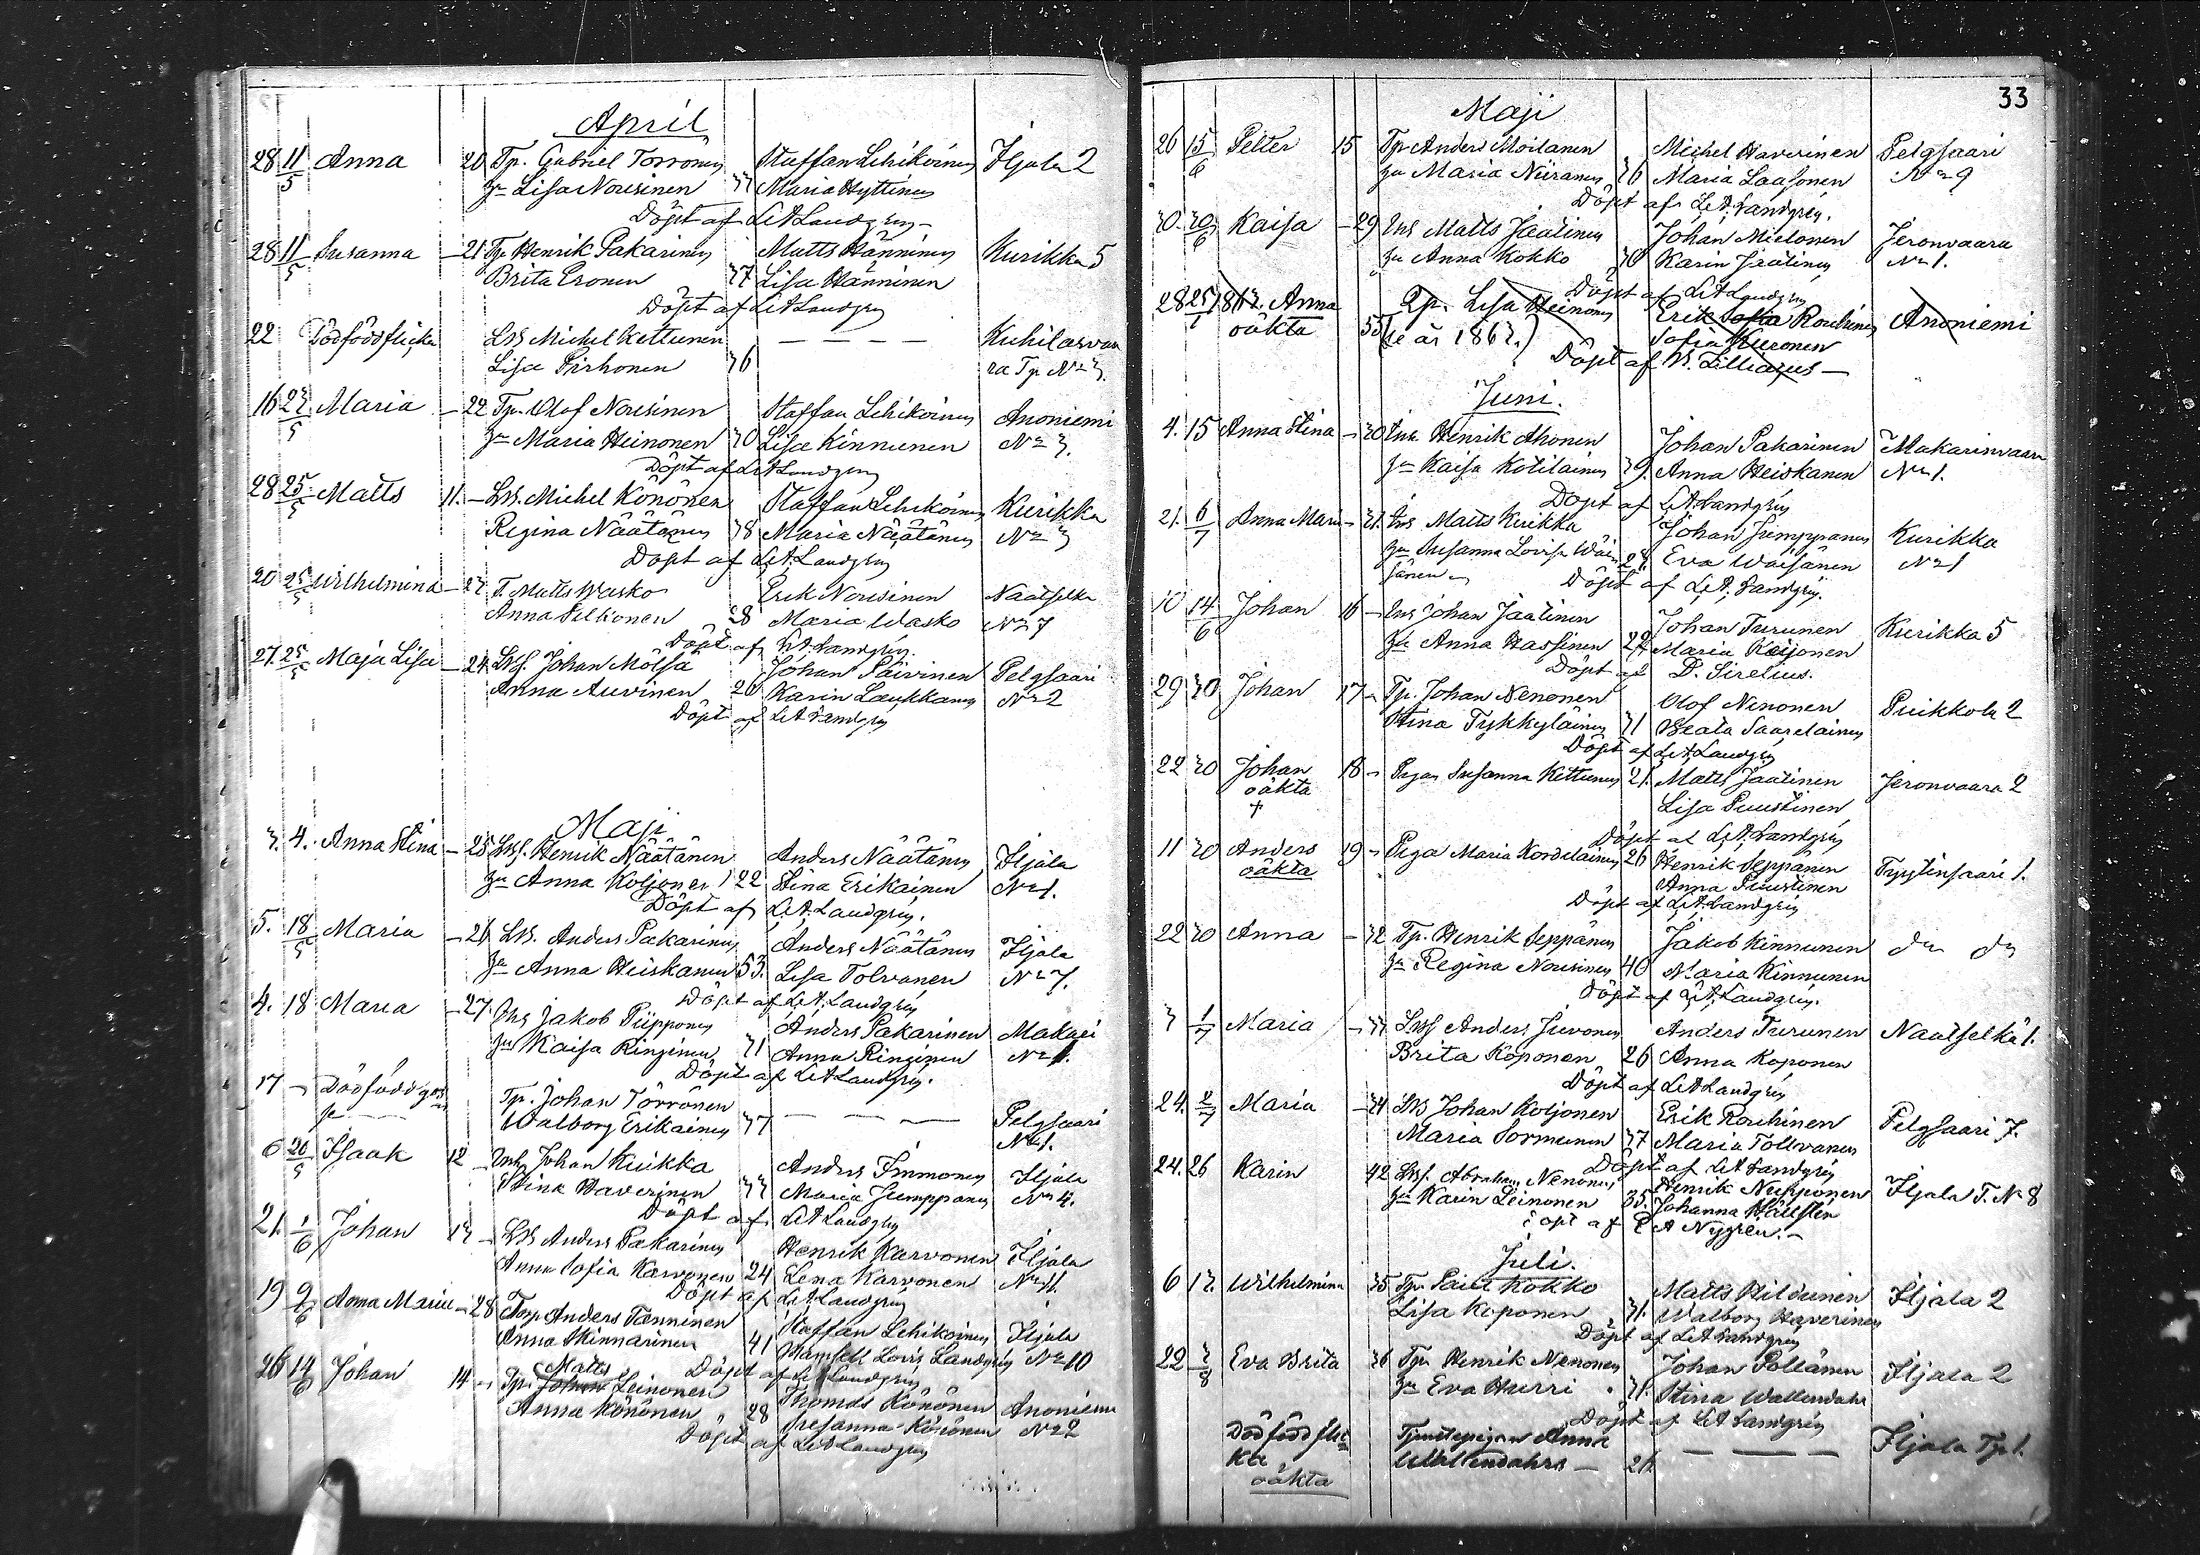 April
28 11/5 Anna 20 Tp. Gabriel Törrönen Staffan Lehikoinen Iljala 2
Lisa Nousinen 37 Maria Hyttinen
Döpt af L A Landgren
28 11/5 Susanna 21 Tp Henrik Pakarinen Matts Hänninen Kurikka 5
Brita Eronen 37 Lisa Hänninen
Döpt af L A Landgren
22 Dödföddflicka Michel Kettunen — — — —
Lisa Pirhonen 36 ra Tp No 3.
16 23/5 Maria — 22 Tp. Olof Nousinen Staffan Lehikoinen Anoniemi
Maria Heinonen 30 Lisa Kinnunen No 3.
Döpt af L A Landgren
28 25/5 Matts 11. — Michel Könönen Staffan Lehikoinen Kurikka
Regina Näätänen 38 Maria Näätänen No 3
Döpt af L. A. Landgren
20 25/5 Wilhelmina — 23 T. Matts Wasko Erik Nousinen Naatselkä
Anna Silkonen 28 Maria Wasko No 7
Döpt af L. A. Landgren
27. 25/5 Maja Lisa — 24. Johan Mölsä Johan Päivinen Pelgsaari
Anna Auvinen 26 Karin Laukkanen No 2
Döpt af L A Landgren
Maji
3. 4. Anna Stina — 25 Henrik Näätänen Anders Näätänen Iljala
Anna Koljonen 22 Stina Erikainen No 1.
Döpt af L. A. Landgren.
5. 18/5 Maria — 26 Anders Pakarinen Anders Näätänen Iljala
Anna Heiskanen 33. Lisa Tolvanen No 7.
Döpt af L. A. Landgren
4. 18 Maria — 27. Jakob Piipponen Anders Pakarinen
Kaisa Ringinen 31 Anna Ringinen No 1.
Döpt af L A Landgren.
17 — Dödföddgos Tp. Johan Törrönen — — —
se — Walborg Erikainen 37 Pelgsaari
No 1.
6 26/5 Isaak 12 — Johan Kuikka Anders Immonen Iljala
Stina Haverinen 33 Maria Jumppanen No 4.
Döpt af L A Landgren
21. 1/6 Johan 13 — Anders Pakarinen Henrik Karvonen Iljala
Anna Sofia Karvonen 24 Lena Karvonen No 11.
Döpt af L A Landgren
19 9/6 Anna Maria — 28 Anders Tanninen Staffan Lehikoinen Iljala
Anna Skinnarinen 41 Mamsell Lovis Landgren No 10
Döpt af L A Landgren
Matts
26 14/6 Johan 14 — Tp. Johan Leinonen Thomas Könönen Anoniemi
Anna Könönen 28 Susanna Könönen No 2
Döpt af L A Landgren
33
Maji
26 15/6 Petter 15 Tp Anders Moilanen Michel Haverinen Pelgsaari
Maria Niiranen 36 Maria Laasonen No 9
Döpt af L. A. Landgren.
30. 30/6 Kaisa — 29 Matts Jaatinen Johan Mielonen Jeronvaara
Anna Kokko 30 Karin Jaatinen No 1.
Döpt af L A Landgren
28 25/1 1863. Anna Tp. Lisa Heinonen Erik Rouhinen Anoniemi
oäkta 55 (se år 1863.) Sofia Kuronen
Döpt af
Juni.
4. 15 Anna Stina — 30 Henrik Ahonen Johan Pakarinen Makarinvaara
Kaisa Kotilainen 39. Anna Heiskanen No 1.
Döpt af L A Landgren
21. 6/7 Anna Maria — 31. Matts Kuikka Johan Jumppanen Kurikka
Susanna Lovisa Wäi 28. Eva Waisänen No 1
sänen Döpt af L. A. Landgren.
10 14/6 Johan 16 — Johan Jaatinen Johan Turunen Kurikka 5
Anna Hassinen 27 Maria Koijonen
Döpt af D. Sirelius.
29 30 Johan 17 — Tp. Johan Nenonen Olof Nenonen Puikkola 2
Stina Tykkyläinen 31 Beata Saarelainen
Döpt af L. A. Landgren
22 30 Johan 18 — Pigan Susanna Kettunen 21. Matts Jaatinen Jeronvaara 2
oäkta Lisa Puustinen
+ Döpt af L. A. Landgren
11 30 Anders 19 — Piga Maria Kordelainen 26 Henrik Seppänen Tyytinsaari 1.
oäkta Anna Puustinen
Döpt af L. A. Landgren
22 30 Anna — 32 Tp. Henrik Seppänen Jakob Kinnunen do do
Regina Nousinen 40 Maria Kinnunen
Döpt af L. A. Landgren.
3 1/7 Maria — 33 Anders Juvonen Anders Turunen Naatselkä 1.
Brita Koponen 26 Anna Koponen
Döpt af L A Landgren
24. 2/7 Maria — 34 Johan Koljonen Erik Rouhinen Pelgsaari 7.
Maria Sormunen 37 Maria Tolvanen
Döpt af L A Landgren
24. 26 Karin 42 Abraham Nenonen Henrik Nupponen Iljala T. No 8
Karin Leinonen 35. Johanna Hällsten
Döpt af A Nygren. —
Juli.
6 13. Wilhelmina 35 Tp. Paul Kokko Matts Hildunen Iljala 2
Lisa Koponen 31. Walborg Haverinen
Döpt af L A Landgren
22 3/8 Eva Brita 36 Tp. Henrik Nenonen Johan Pöllänen Iljala 2
Eva Hurri 31. Stina Wallendahr
Döpt af L A Landgren
Dödfödd flic Tjenstepigan Anna — — Iljala Tp 1.
ka Wallendahrs — 26
oäkta